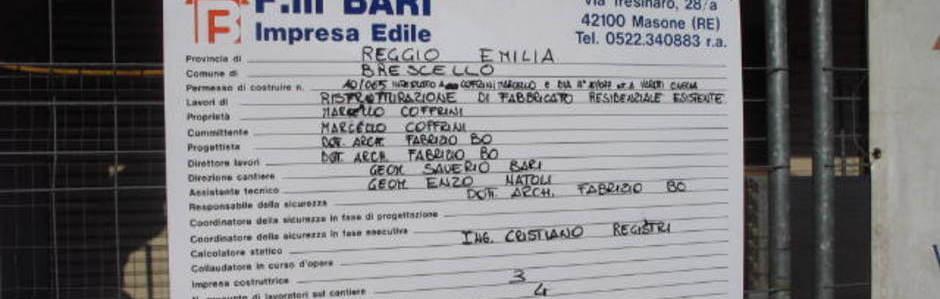 F.lli BARI
Impresa Edile
Via Tresinaro, 28/a
42100 Masone (RE)
Tel. 0522.340883 r.a.
Provincia di REGGIO EMILIA
Comune di BRESCELLO
Permesso di costruire n. 10/005 COFFRINI MARCELLO E
Lavori di RISTRUTTURAZIONE DI FABBRICATO RESIDENZIALE ESISTENTE
Proprietà MARCELLO COFFRINI
Committente MARCELLO COFFRINI
Progettista DOT. ARCH. FABRIZIO BO
Direttore lavori DOT. ARCH. FABRIZIO BO
Direzione cantiere GEOM SAVERIO BARI
Assistente tecnico GEOM ENZO NATOLI
Responsabile della sicurezza DOTT. ARCH. FABRIZIO BO
Coordinatore della sicurezza in fase di progettazione
Coordinatore della sicurezza in fase esecutiva
Calcolatore statico ING. CRISTIANO REGISTRI
Collaudatore in corso d'opera
Impresa costruttrice 3
lavoratori sul cantiere 4